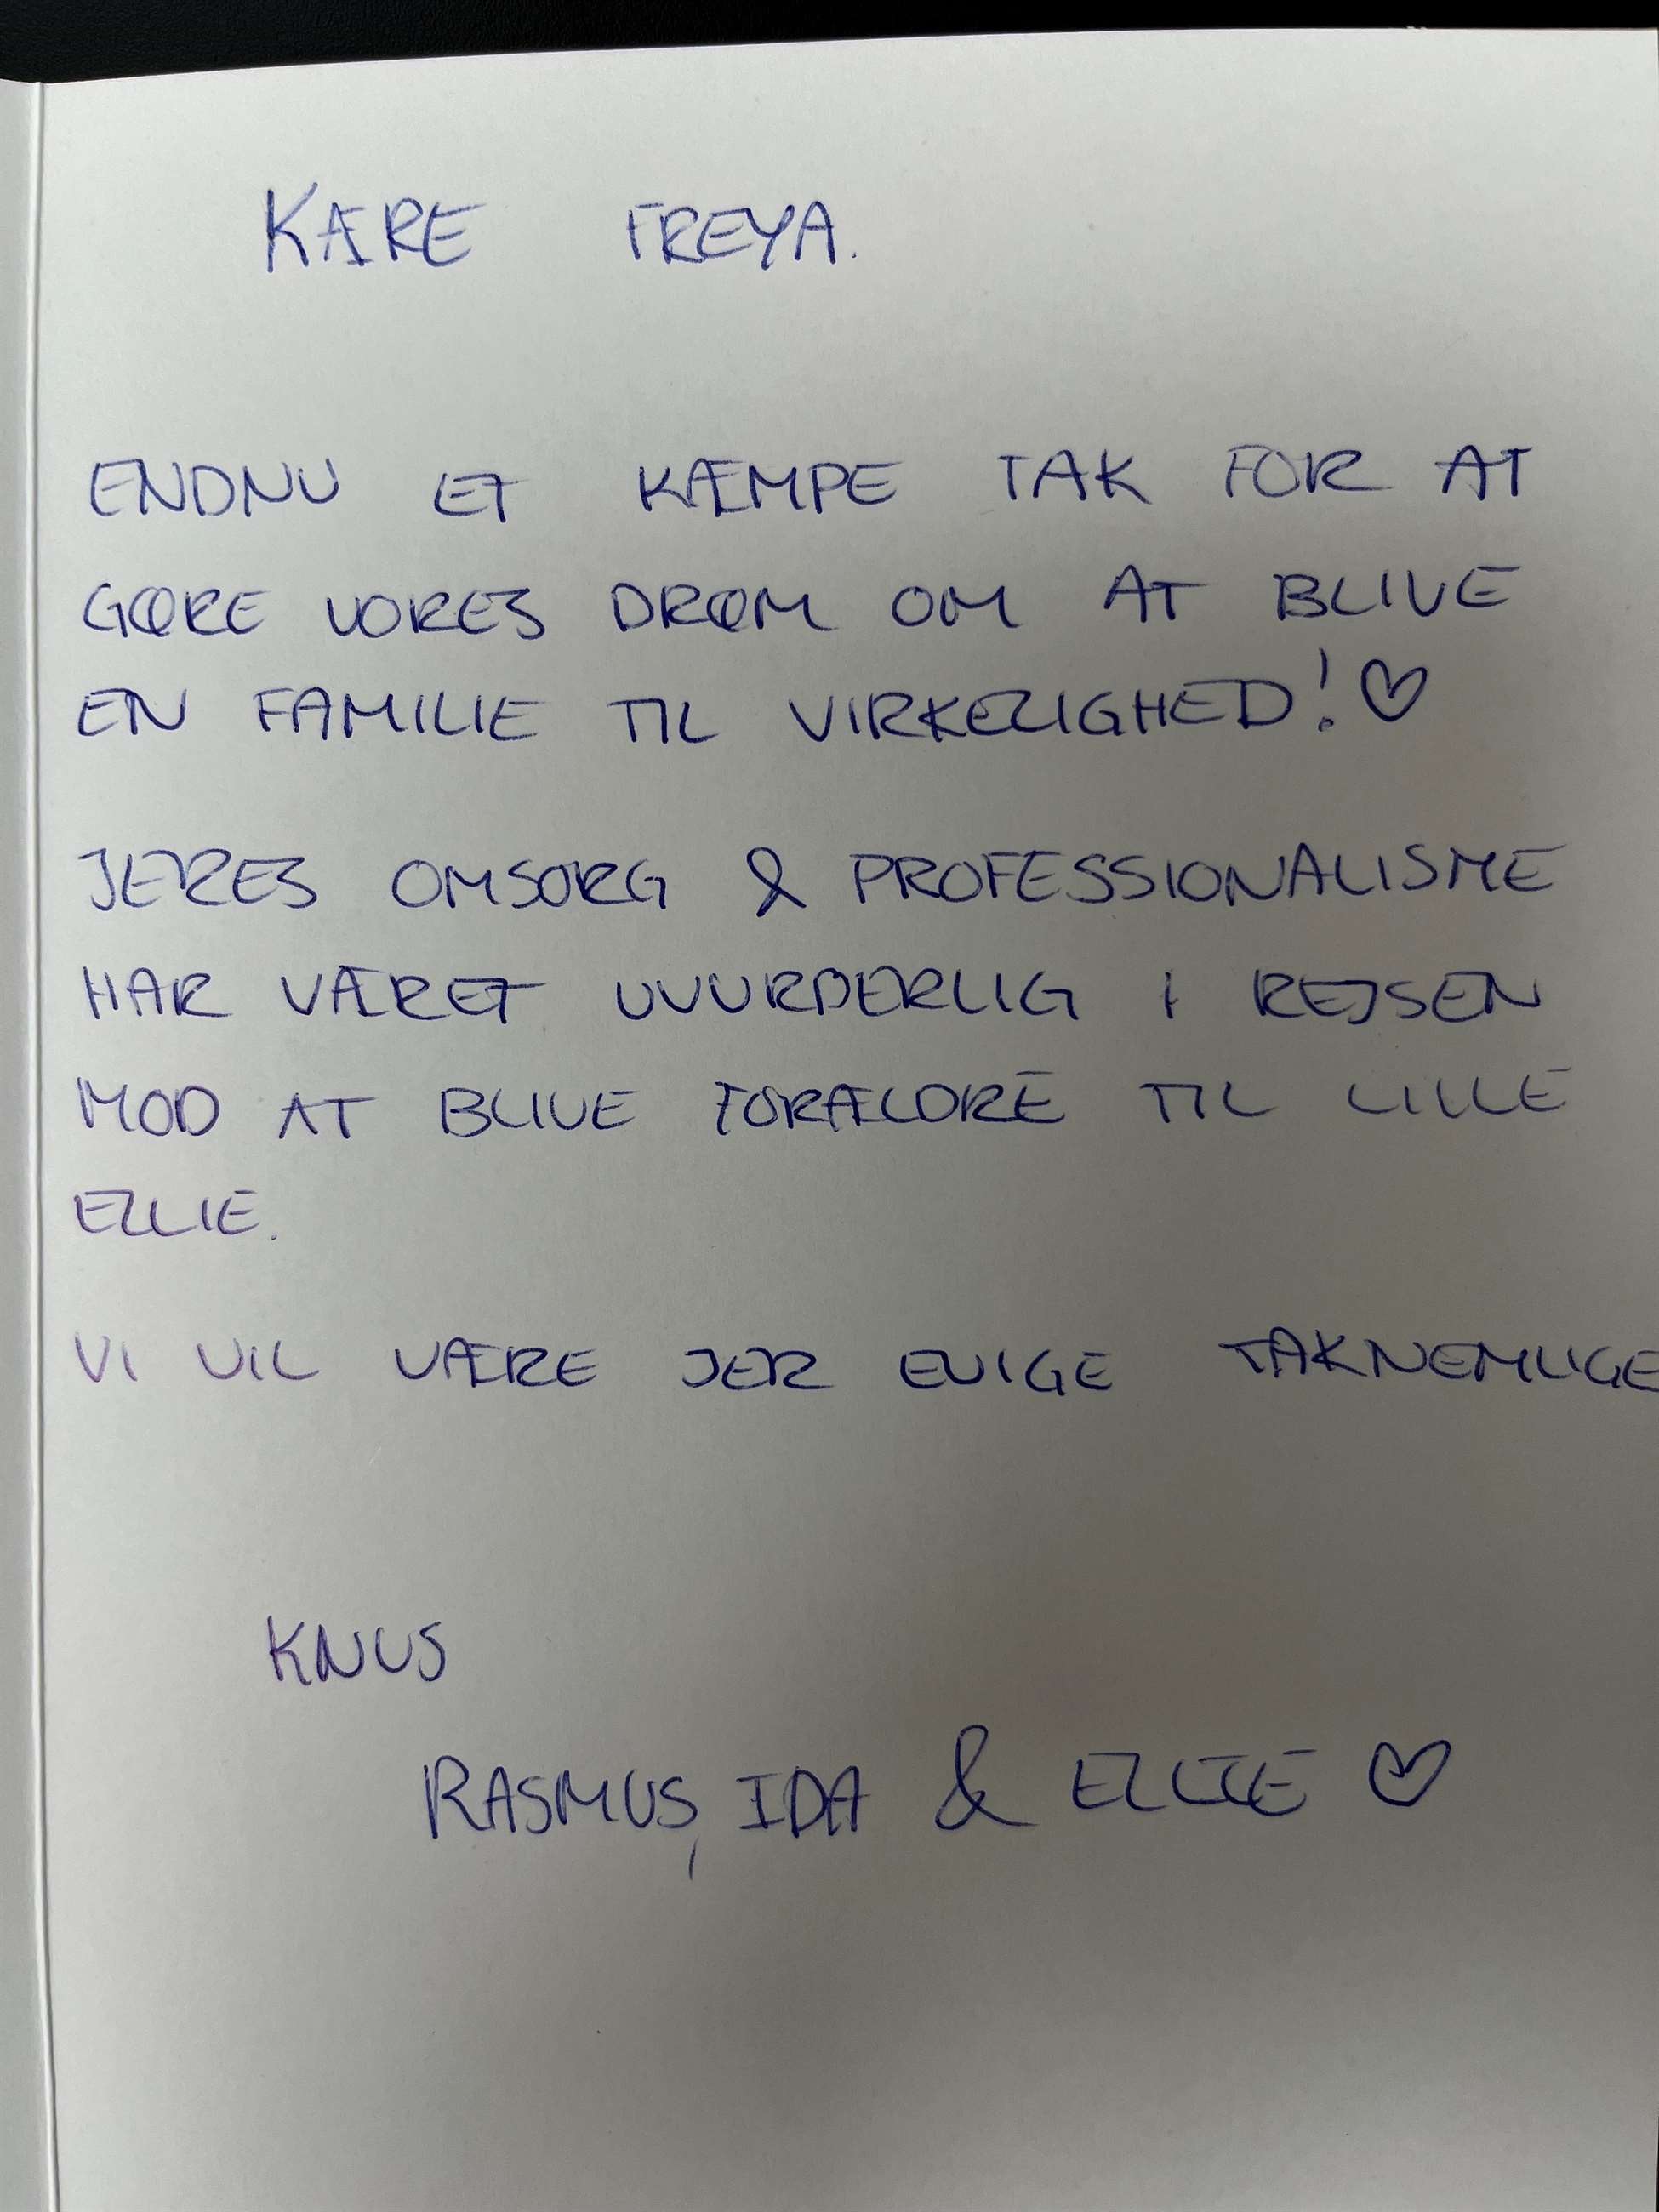 KÆRE FREYA.
ENDNU ET KÆMPE TAK FOR AT
GØRE VORES DRØM OM AT BLIVE
EN FAMILIE TIL VIRKELIGHED! ♡
JERES OMSORG & PROFESSIONALISME
HAR VÆRET UVURDERLIG I REJSEN
MOD AT BLIVE FORÆLDRE TIL LILLE
ELLIE.
VI VIL VÆRE JER EVIGE TAKNEMLIGE
KNUS
RASMUS, IDA & ELLIE ♡